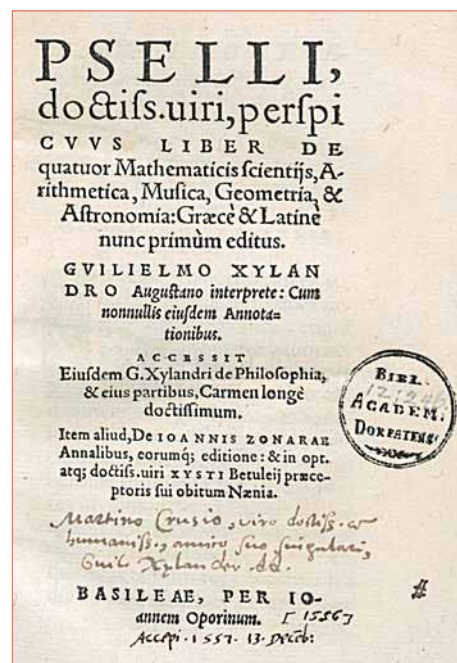 PSELLI,
doctiss.uiri, perspi
CVVS LIBER DE
quatuor Mathematicis scientijs, A-
rithmetica, Musica, Geometria, &
Astronomia: Græcè & Latinè
nunc primùm editus.
GVILIELMO XYLAN
DRO Augustano interprete: Cum
nonnullis eiusdem Annota=
tionibus.
ACCESSIT
Eiusdem G. Xylandri de Philosophia,
& eius partibus, Carmen longè
doctissimum.
Item aliud, De IOANNIS ZONARAE
Annalibus, eorumq́; editione: & in opt.
atq; doctiss. uiri XYSTI Betuleij præce-
ptoris sui obitum Nænia.
BIBL.
12:246
ACADEM.
DORPATENS.
Martino Crusio, viro doctiss. &
humaniss., amico suo singulari,
Guil. Xylander .dd.
BASILEAE, PER IO-
annem Oporinum. [1556]
Accepi. 1557. 13. Decēb:
#